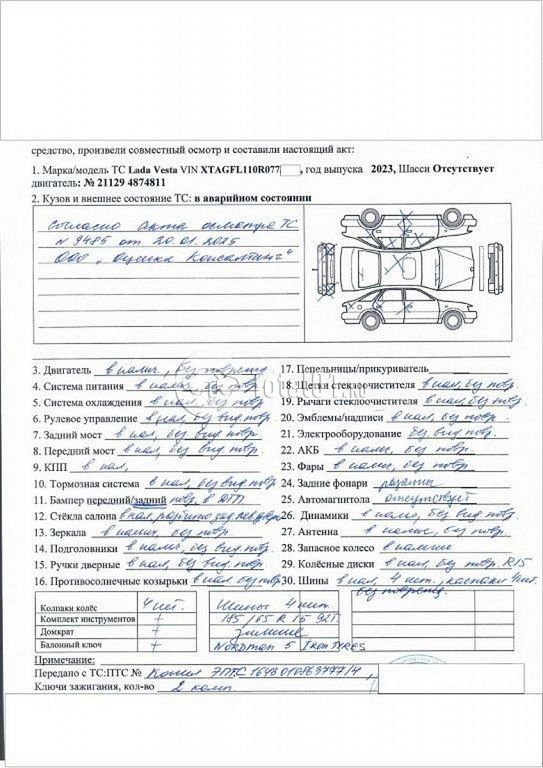 средство, произвели совместный осмотр и составили настоящий акт:
1. Марка/модель ТС Lada Vesta VIN XTAGFL110R077 , год выпуска 2023, Шасси Отсутствует
двигатель: № 21129 4874811
2. Кузов и внешнее состояние ТС: в аварийном состоянии
Согласно Акта осмотра ТС
N 9485 от 20.01.2025
ООО "Оценка Консалтинг"
3. Двигатель в налич., без поврежд
4. Система питания в налич без повр.
5. Система охлаждения в нал, без повр.
6. Рулевое управление в нал, без вид повр.
7. Задний мост в нал, без вид. повр.
8. Передний мост в нал, без вид. повр.
9. КПП в нал,
10. Тормозная система в нал, без вид повр.
11. Бампер передний/задний повр. в ДТП
12. Стёкла салона в нал, разбито зад лев двери
13. Зеркала в налич, без вид повр.
14. Подголовники в налич, без вид повр.
15. Ручки дверные в налич, без вид повр.
16. Противосолнечные козырьки в нал без вид повр.
17. Пепельницы/прикуриватель
18. Щетки стеклоочистителя в нал, без повр
19. Рычаги стеклоочистителя в нал, без повр.
20. Эмблемы/надписи в нал, без повр.
21. Электрооборудование без вид повр.
22. АКБ в налич, без повр.
23. Фары в налич, без повр.
24. Задние фонари разбиты
25. Автомагнитола отсутствует
26. Динамики в налич, без вид повр.
27. Антенна в налич, без вид повр.
28. Запасное колесо в наличии
29. Колёсные диски в нал, без повр. R15
30. Шины в нал, 4 шт, колпаки 4шт.
без поврежд.
Колпаки колёс 4 шт.
Комплект инструментов +
Домкрат +
Балонный ключ +
Шины 4 шт.
185/65 R 15 92T.
зимние
NORDMAN 5 IKON TYRES
Примечание:
Передано с ТС:ПТС № Копия ЭПТС 164301086377714,
Ключи зажигания, кол-во 2 комп.